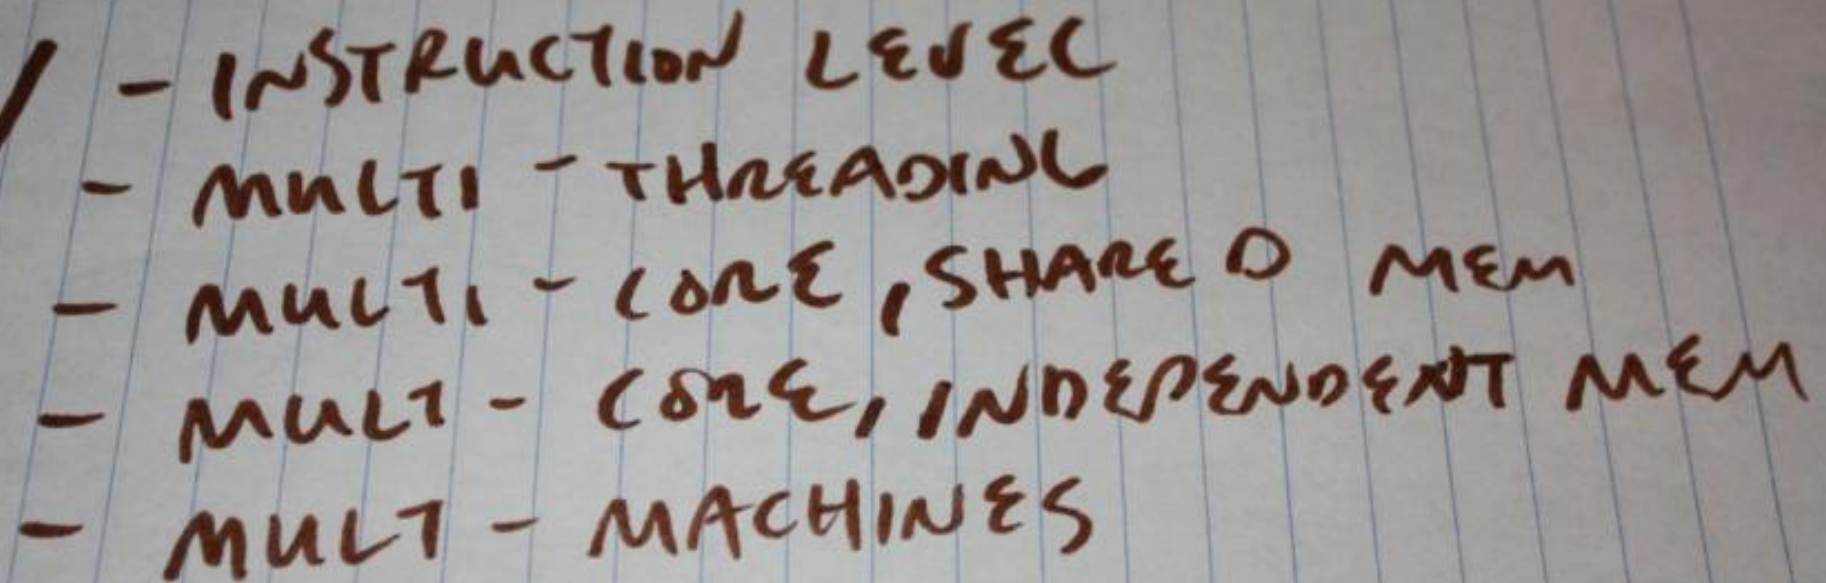 - INSTRUCTION LEVEL
- MULTI - THREADING
- MULTI - CORE, SHARED MEM
- MULT - CORE, INDEPENDENT MEM
- MULT - MACHINES